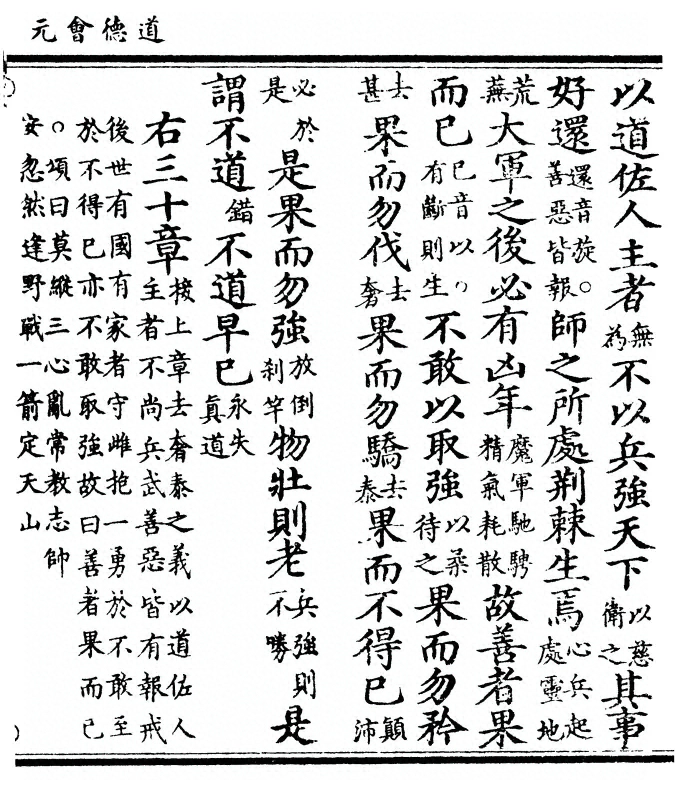 道德會元
以道佐人主者無為不以兵強天下以慈衛之其事
好還還音旋。善惡皆報師之所處荆棘生焉心兵起處靈地
荒蕪大軍之後必有凶年魔軍馳騁精氣耗散故善者果
而已已音以。有斷則生不敢以取強以柔待之果而勿矜
去甚果而勿伐去奢果而勿驕去泰果而不得已顛沛
必於是是果而勿強放倒刹竿物壯則老兵強則不勝是
謂不道錯不道早已永失真道
右三十章接上章去奢泰之義以道佐人主者不尚兵武善惡皆有報戒
後世有國有家者守雌抱一勇於不敢至
於不得已亦不敢取強故曰善者果而已
○頌曰莫縱三心亂常教志帥
安忽然逢野戰一箭定天山